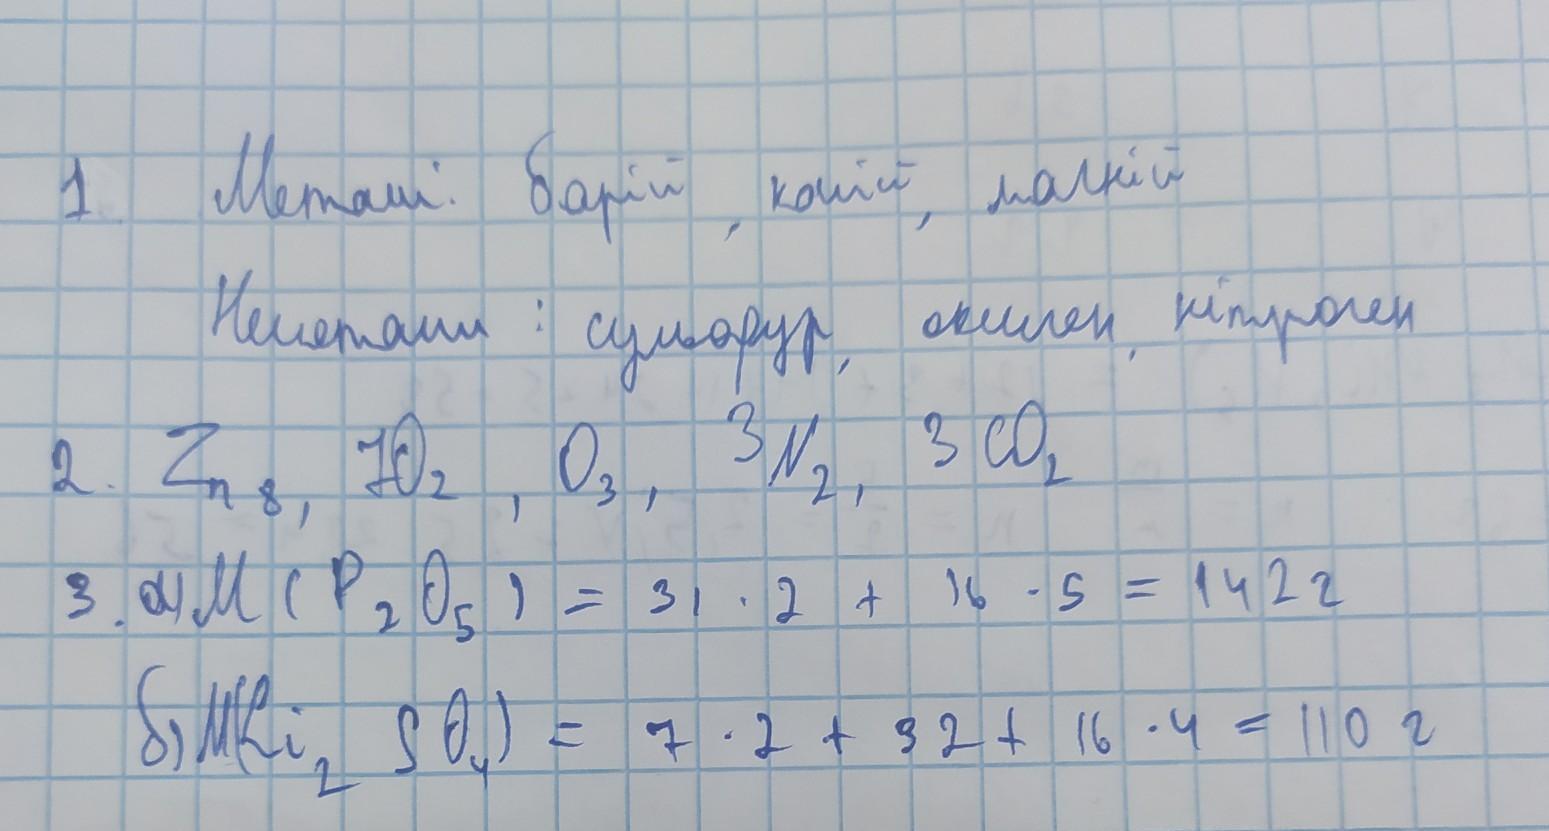 1. Метали: барій, калій, магній
Неметали : сульфур, оксиген, нітроген
2. Zn 8, 7O₂, O₃, 3N₂, 3CO₂
3. а) M ( P₂O₅ ) = 31 · 2 + 16 · 5 = 142 г
б) M(Li₂ SO₄) = 7 · 2 + 32 + 16 · 4 = 110 г